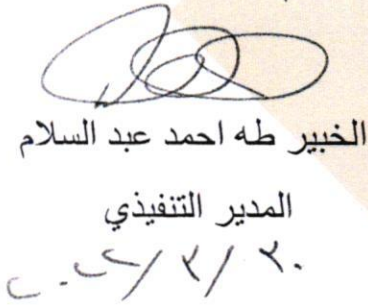 الخبير طه احمد عبد السلام
المدير التنفيذي
٢٠٢٢/٣/٣٠